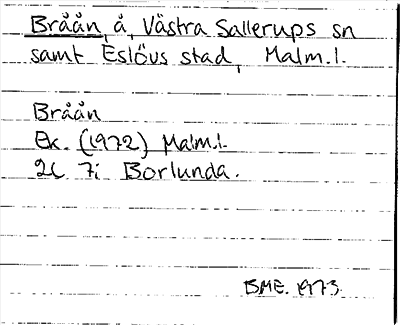 Bråån, å, Västra Sallerups sn
samt Eslövs stad, Malm.l.
Bråån
Ek. (1972) Malm.l.
2C 7i Borlunda.
BME. 1973